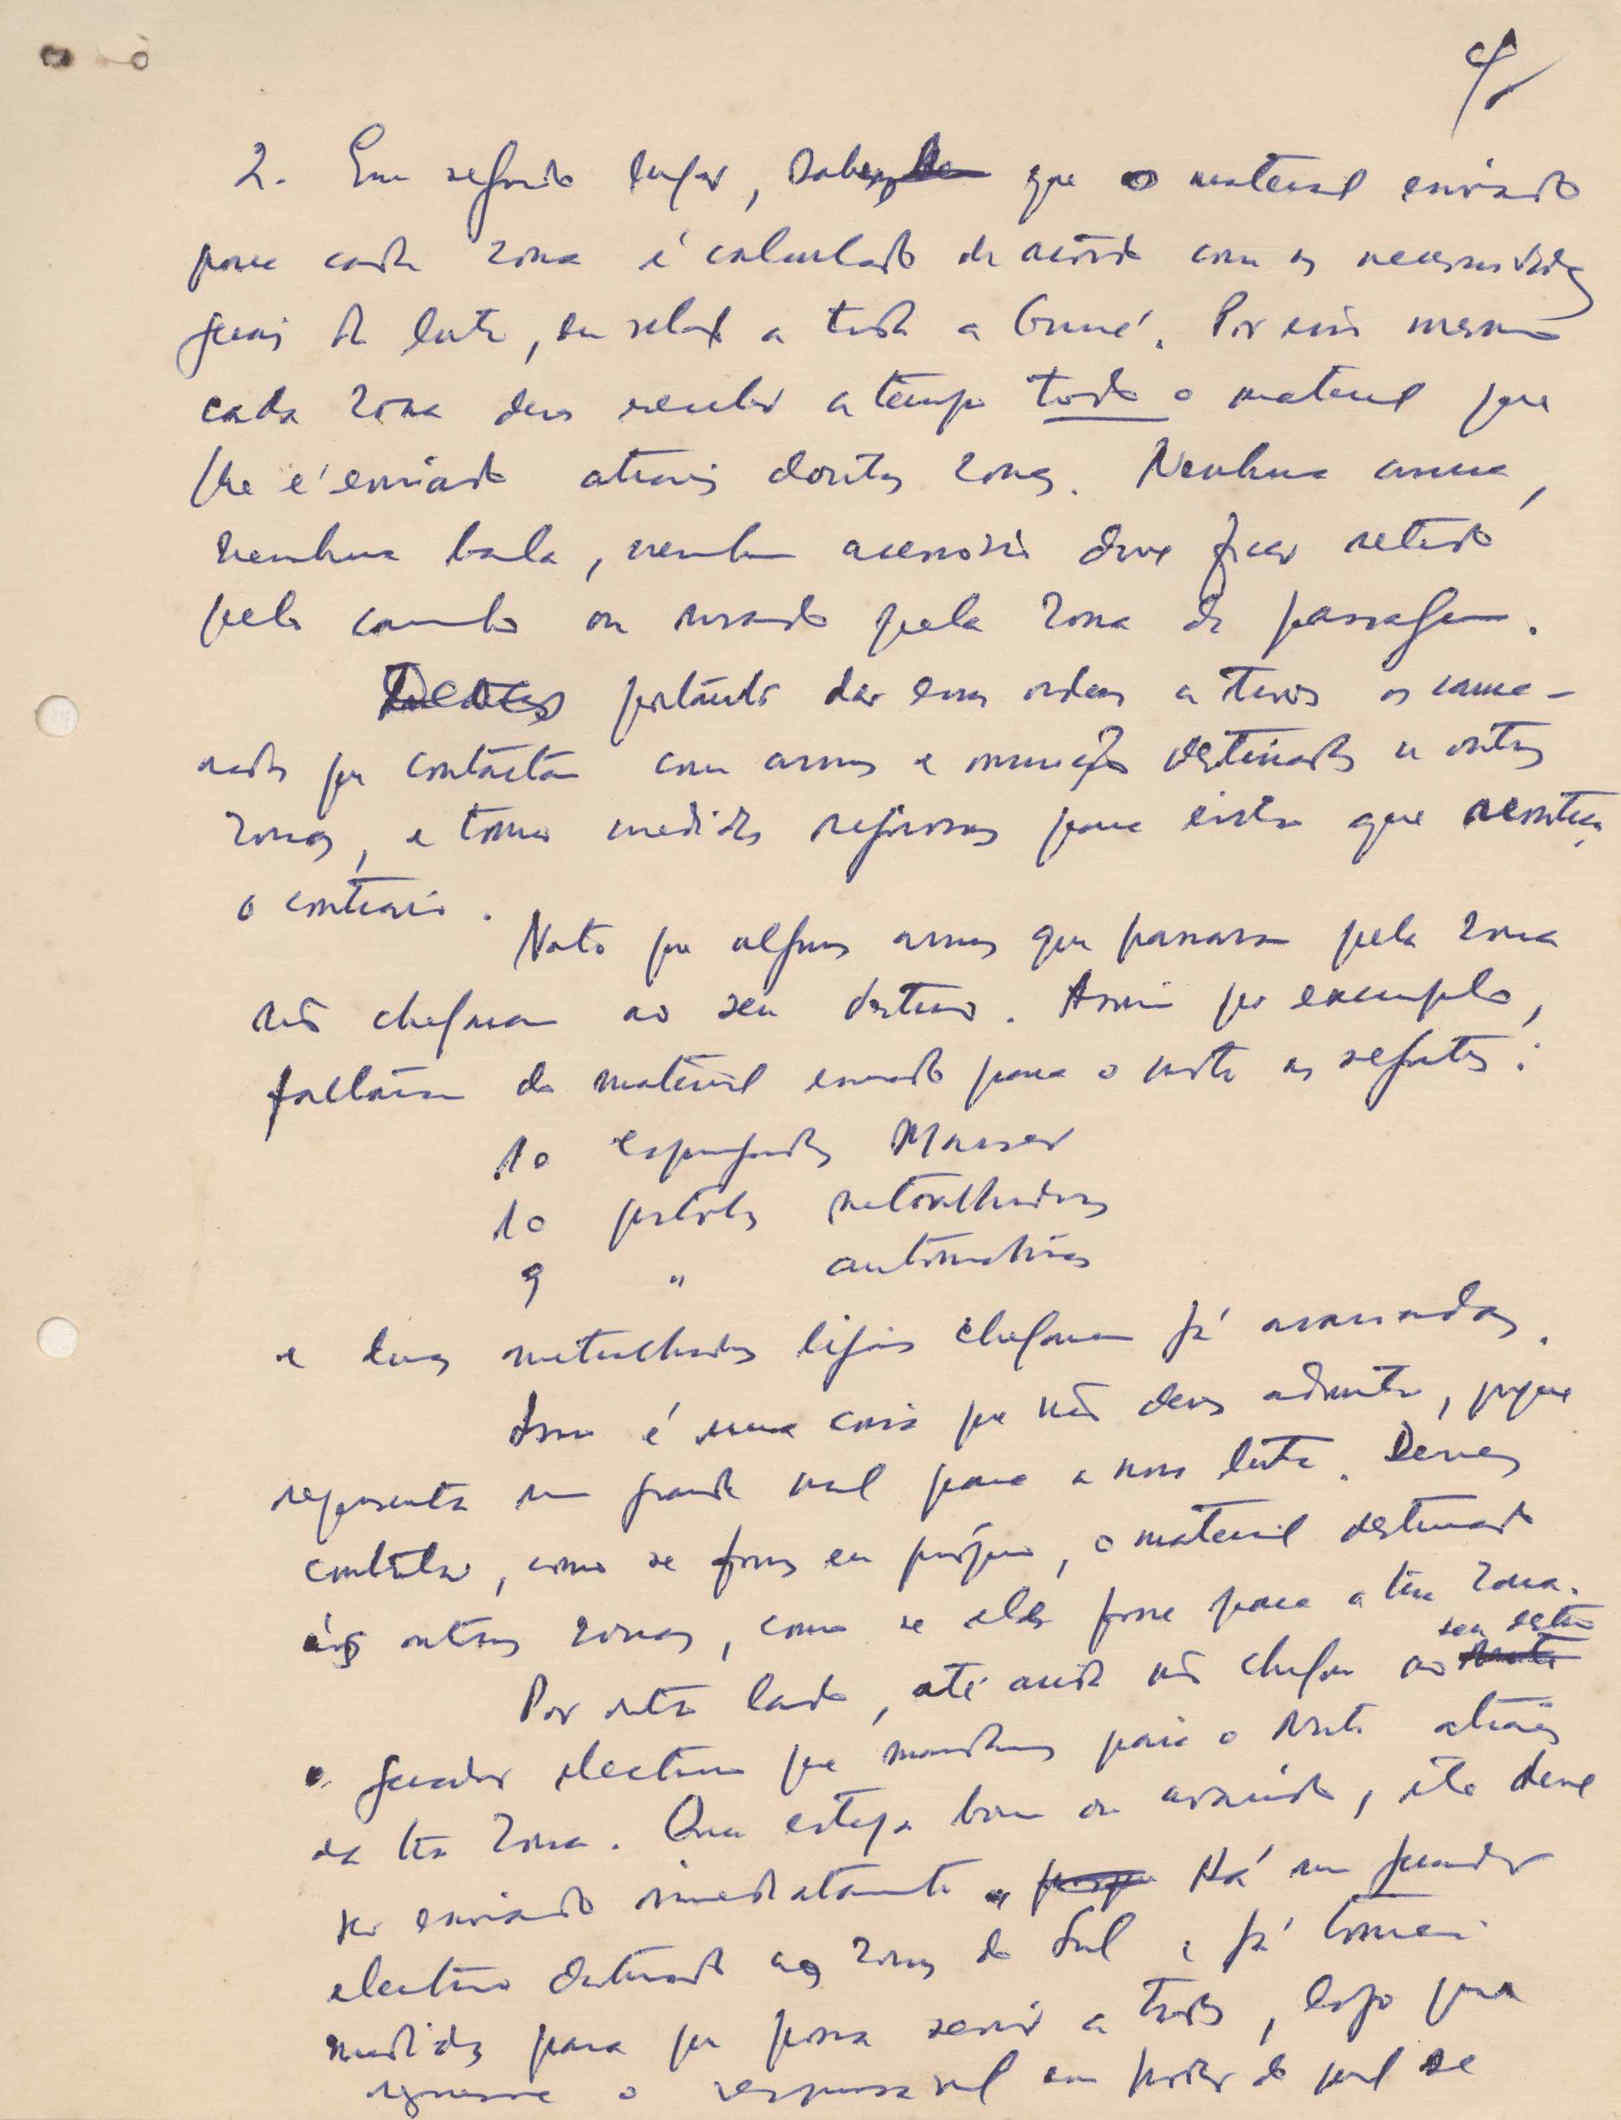 4
2. Em segundo lugar, sabes que o material enviado
para cada zona é calculado de acôrdo com as necessidades
gerais da luta, em relação a toda a Guiné. Por isso mesmo
cada zona deve receber a tempo todo o material que
lhe é enviado através doutras zonas. Nenhuma arma,
nenhuma bala, nenhum acessório deve ficar retido
pelo caminho ou usado pela zona de passagem.
Deves portanto dar essas ordens a todos os cama-
radas que contactam com armas e munições destinadas a outras
zonas, e tomar medidas rigorosas para evitar que aconteça
o contrário.
Noto que algumas armas que passaram pela zona
não chegaram ao seu destino. Assim por exemplo,
faltaram do material enviado para o norte as seguintes:
10 espingardas Mauser
10 pistolas metralhadoras
9 " automáticas
e duas metralhadoras ligeiras chegaram já avariadas.
Isso é uma coisa que não deves admitir, porque
representa um grande mal para a nossa luta. Deves
controlar, como se fosses eu próprio, o material destinado
às outras zonas, como se ele fosse para a tua zona.
Por outro lado, até ainda não chegou ao seu destino
o gerador eléctrico que mandámos para o Norte através
da tua zona. Quer esteja bom ou avariado, êle deve
ser enviado imediatamente. Há um gerador
eléctrico destinado às zonas do Sul e já tomei
medidas para que possa servir a todos, logo que
regresse o responsável em poder do qual se